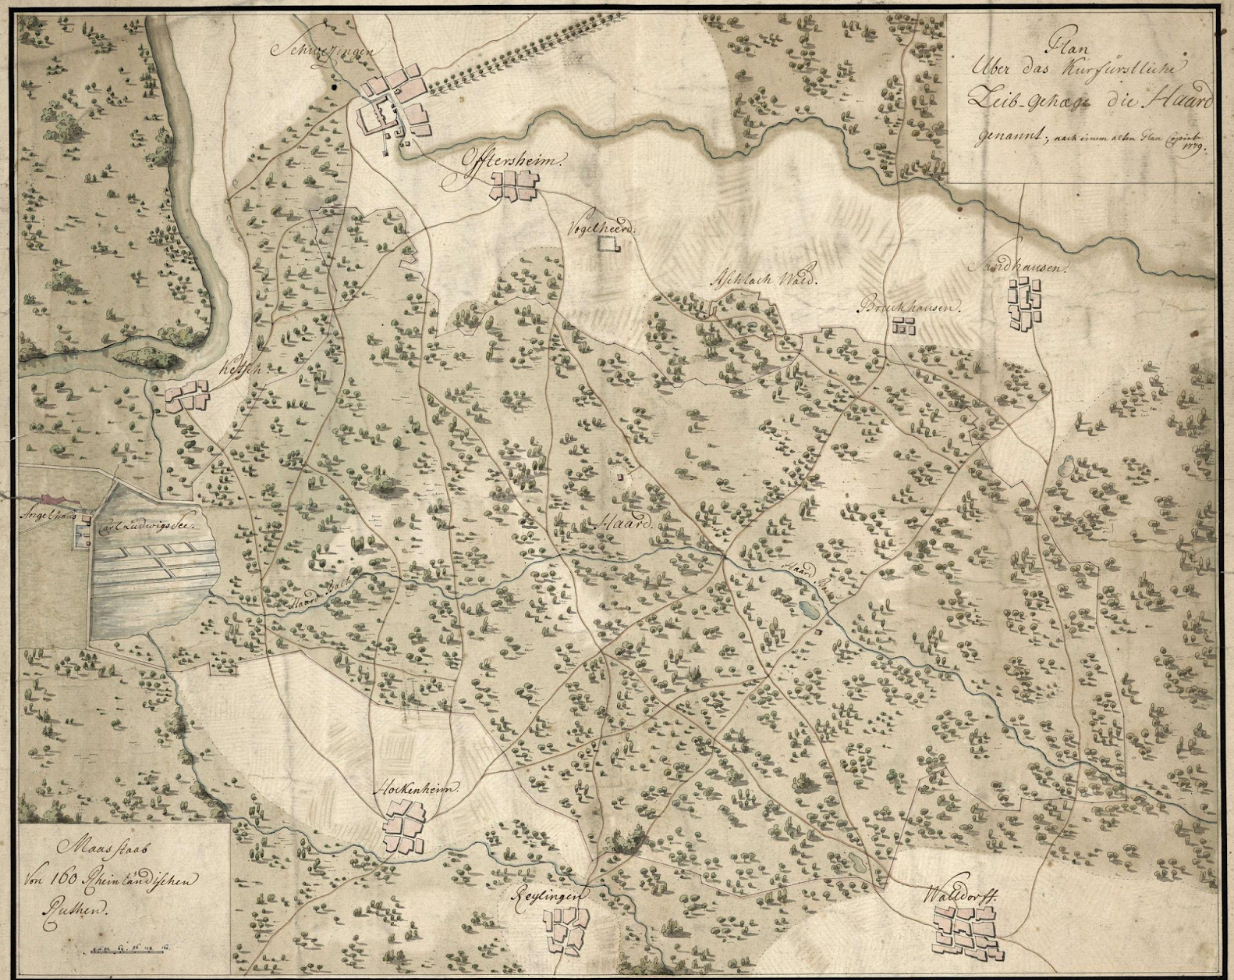 Plan
Uber das Kurfürstliche
Leib-Gehæge die Haard
genannt; nach einem alten Plan Copirt
1779.
Schwezingen
Offtersheim.
Vogelheerd.
Aschlach Wald.
Sandhausen.
Bruchhausen.
Ketsch.
Angelhaus
Carl Ludwigs See.
Haard.
Haard Bach
Haard Bach
Hockenheim.
Maas staab
Von 160 Rheinländischen
Ruthen.
Reylingen
Walldorff.